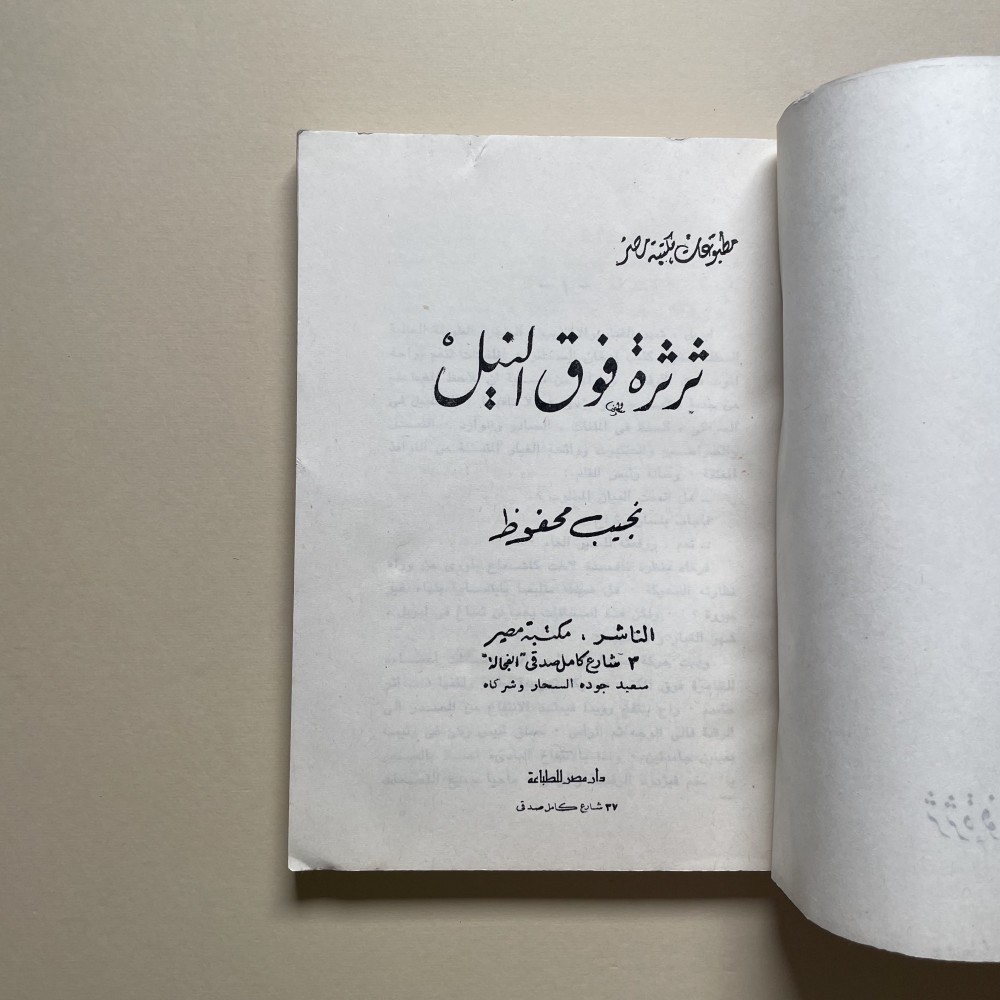 مطبوعات مكتبة مصر
ثرثرة فوق النيل
نجيب محفوظ
الناشر ، مكتبة مصر
٣ شارع كامل صدقى "الفجالة"
سعيد جوده السحار وشركاه
دار مصر للطباعة
٣٧ شارع كامل صدقى